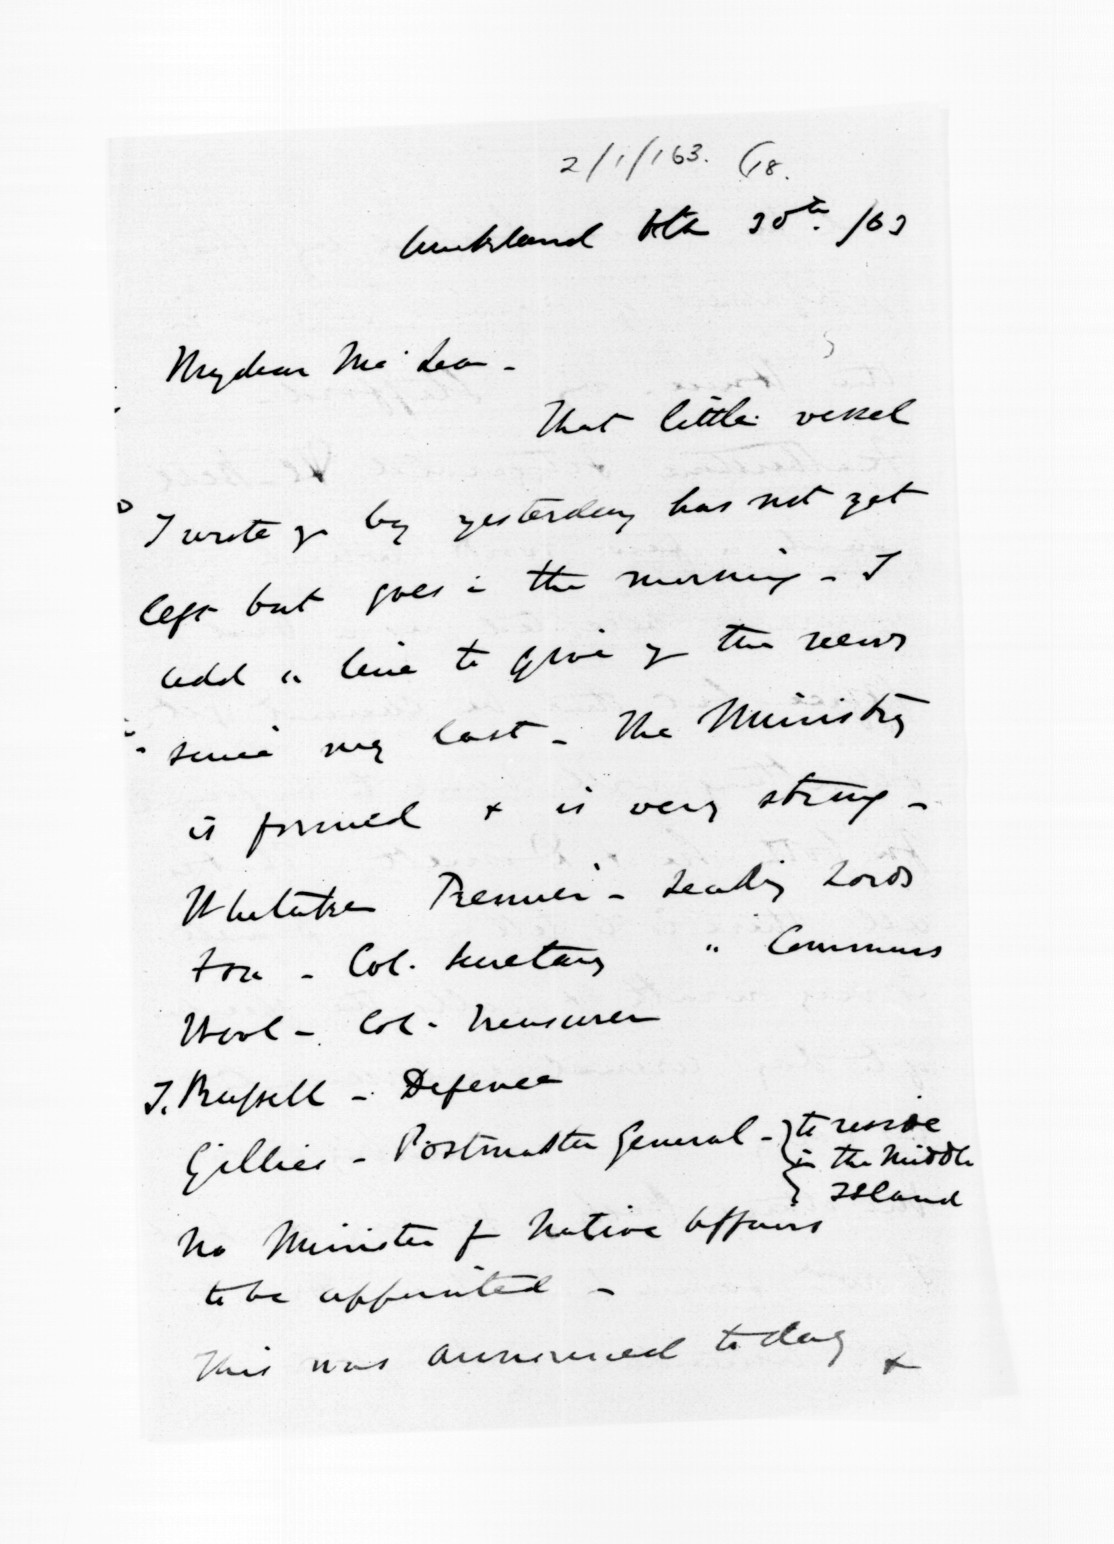 2/1/163. (18.
Auckland Octr 30th. /63
My dear McLean -
That little vessel
I wrote yr by yesterday has not yet
left but goes in the morning - I
add a line to give yr the news
since my last - The Ministry
is formed + is very strong -
Whitaker Premier - Leading Lords
Fox - Col. Secretary " Commons
Wood - Col. Treasurer
T. Russell - Defence
Gillies - Postmaster General - to reside
in the Middle
Island
No Minister for Native Affairs
to be appointed -
This was announced today +